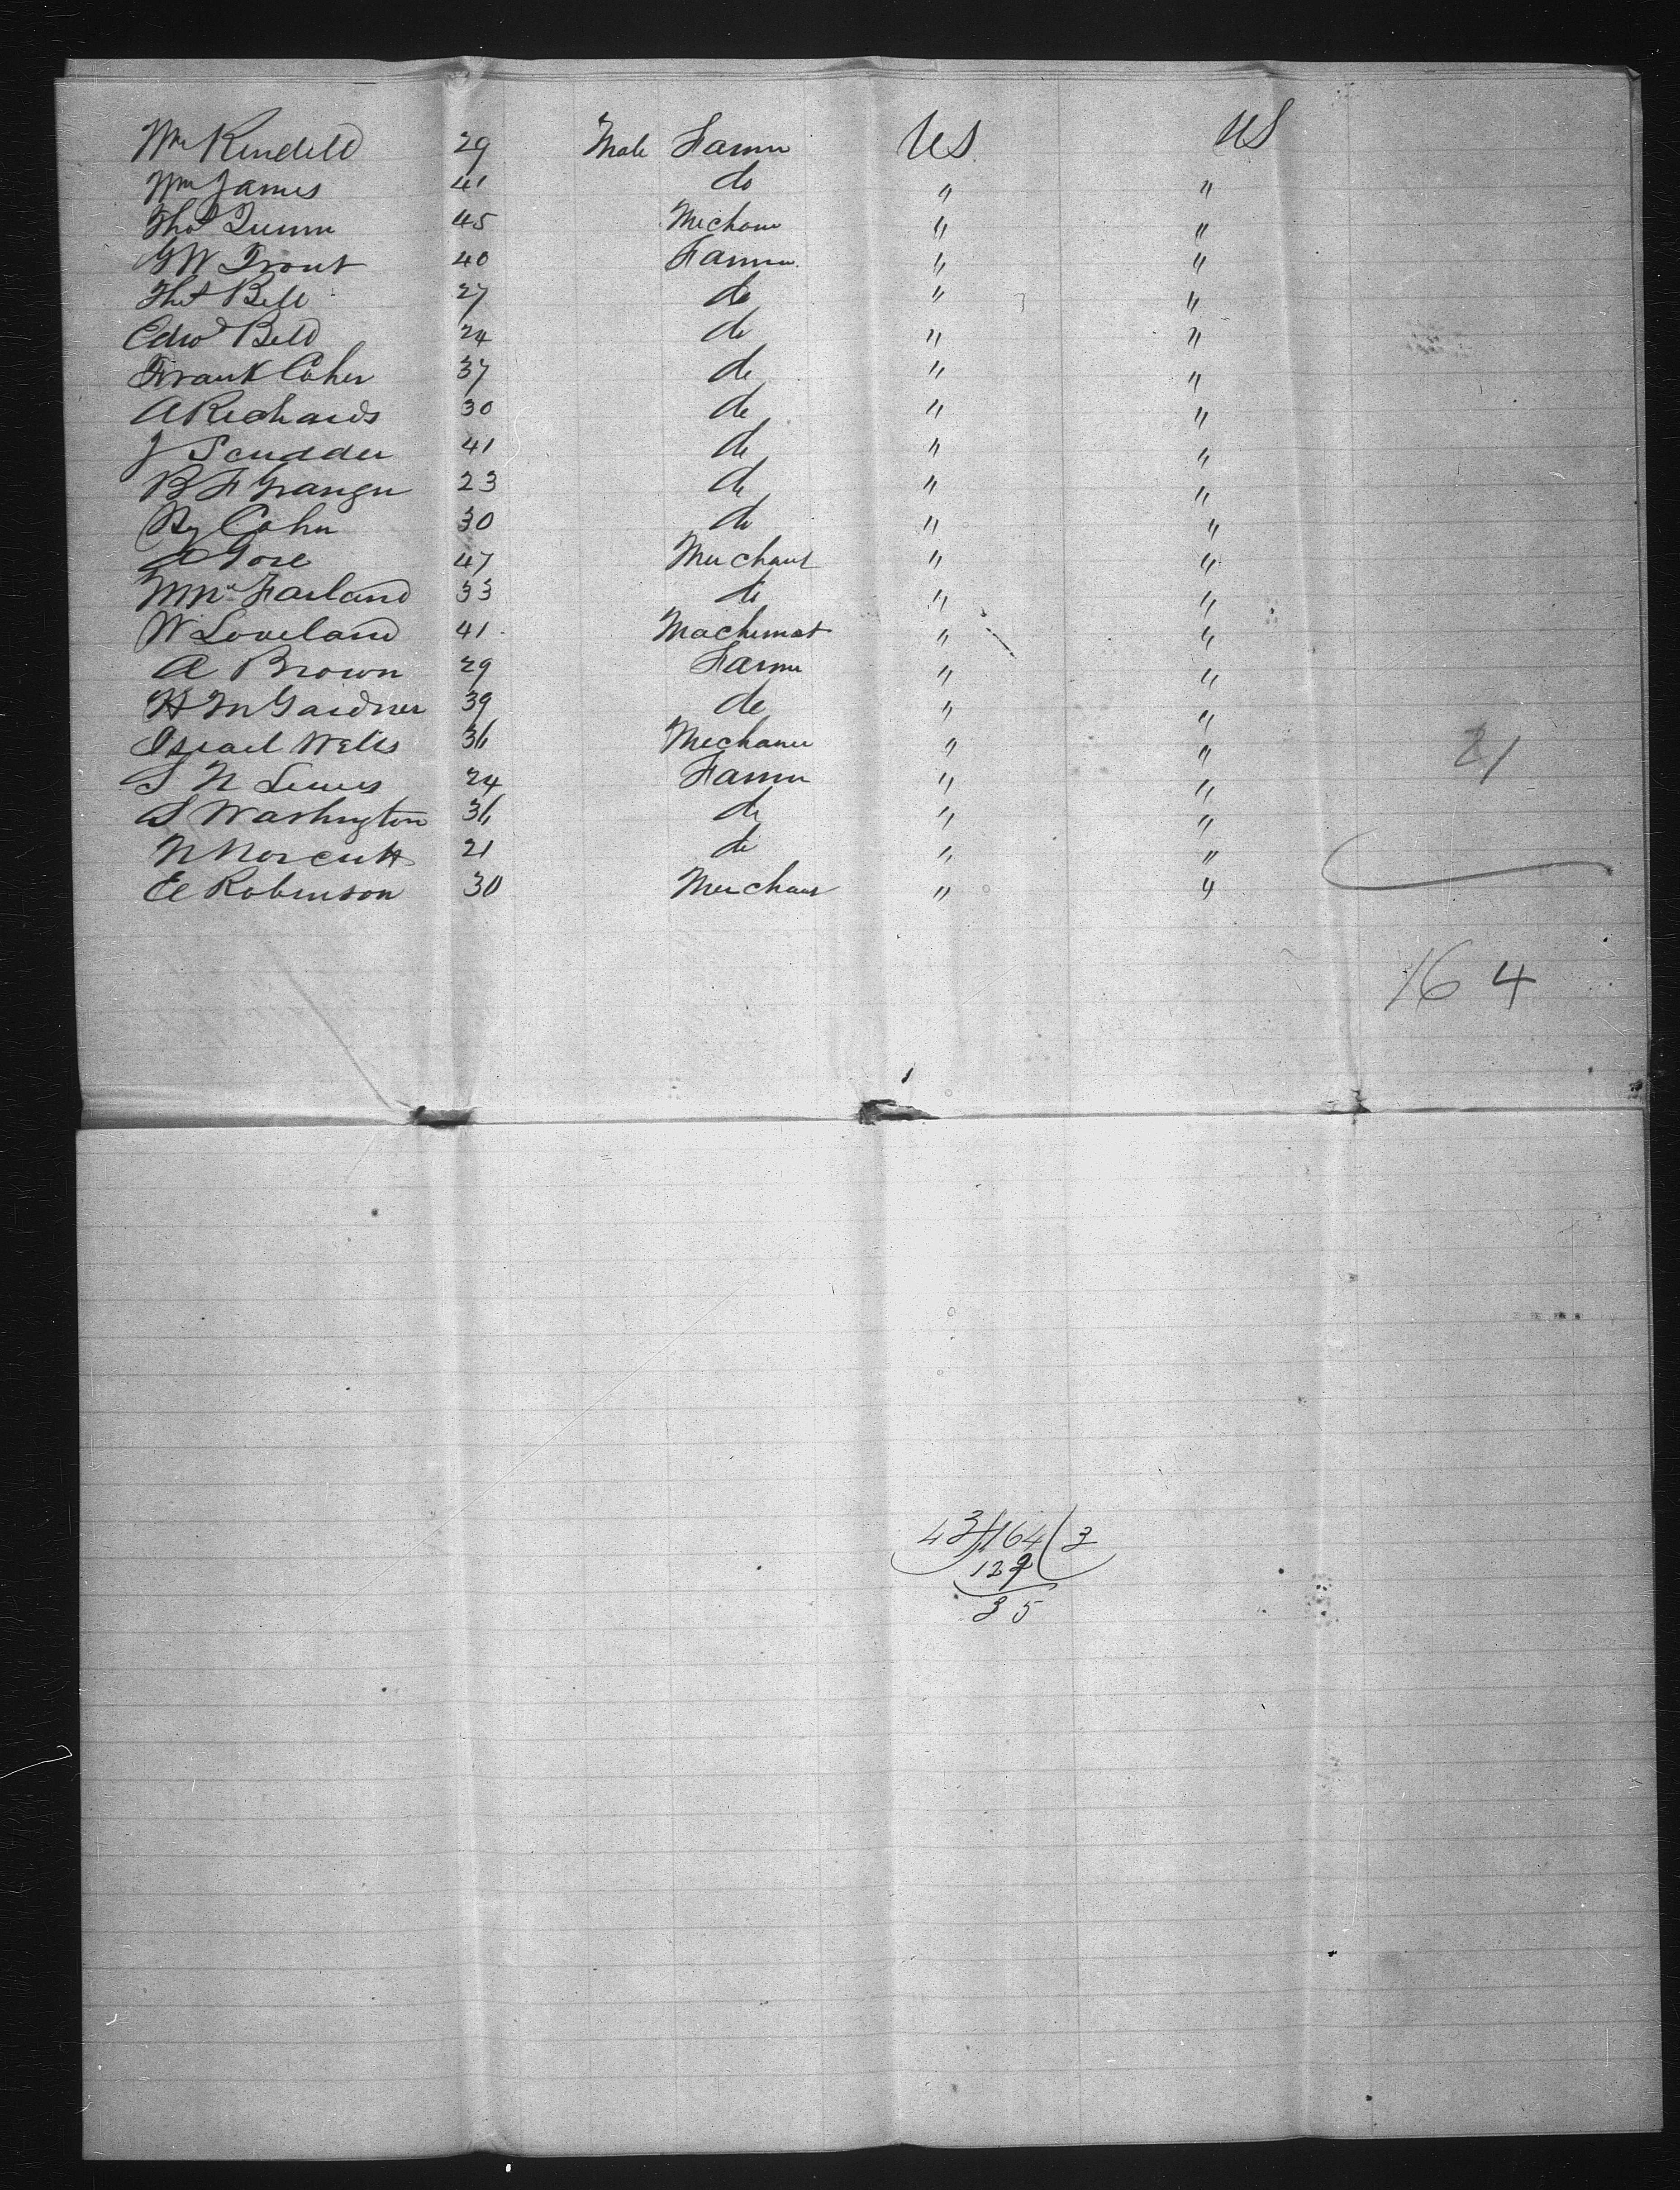 Wm Rindell 29 Male Farmer US US
Wm James 41 do " "
Thos Quinn 45 Mechanic " "
G W Trout 40 Farmer " "
Thos Bell 27 do " "
Edwd Bell 24 do " "
Frank Coher 37 do " "
A Richards 30 do " "
J Scudder 41 do " "
B F Granger 23 do " "
Hy Cohn 30 do " "
A Gore 47 Merchant " "
M McFarland 33 do " "
W Loveland 41 Machinist " "
A Brown 29 Farmer " "
H M Gardner 39 do " "
Israel Wells 36 Mechanic " "
21
S N Lewis 24 Farmer " "
S Washington 36 do " "
N Norcutt 21 do " "
E Robinson 30 Merchant " "
164
43)164(3
129
35